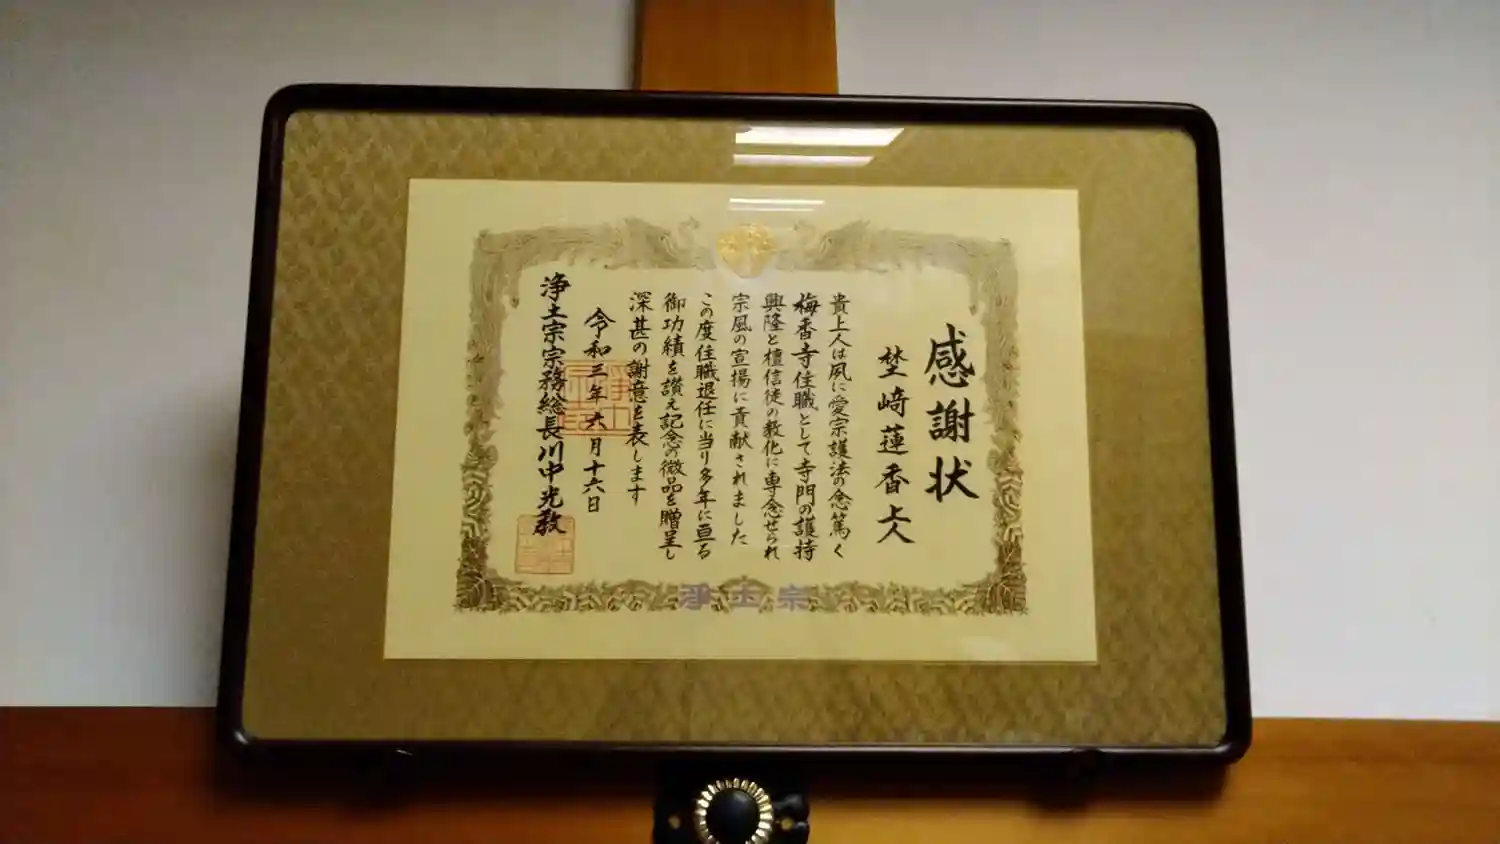 感謝状
埜﨑蓮香上人
貴上人は夙に愛宗護法の念篤く
梅香寺住職として寺門の護持
興隆と檀信徒の教化に専念せられ
宗風の宣揚に貢献されました
この度住職退任に当り多年に亘る
御功績を讃え記念の微品を贈呈し
深甚の謝意を表します
令和三年六月十六日
浄土宗宗務総長川中光教
浄土宗